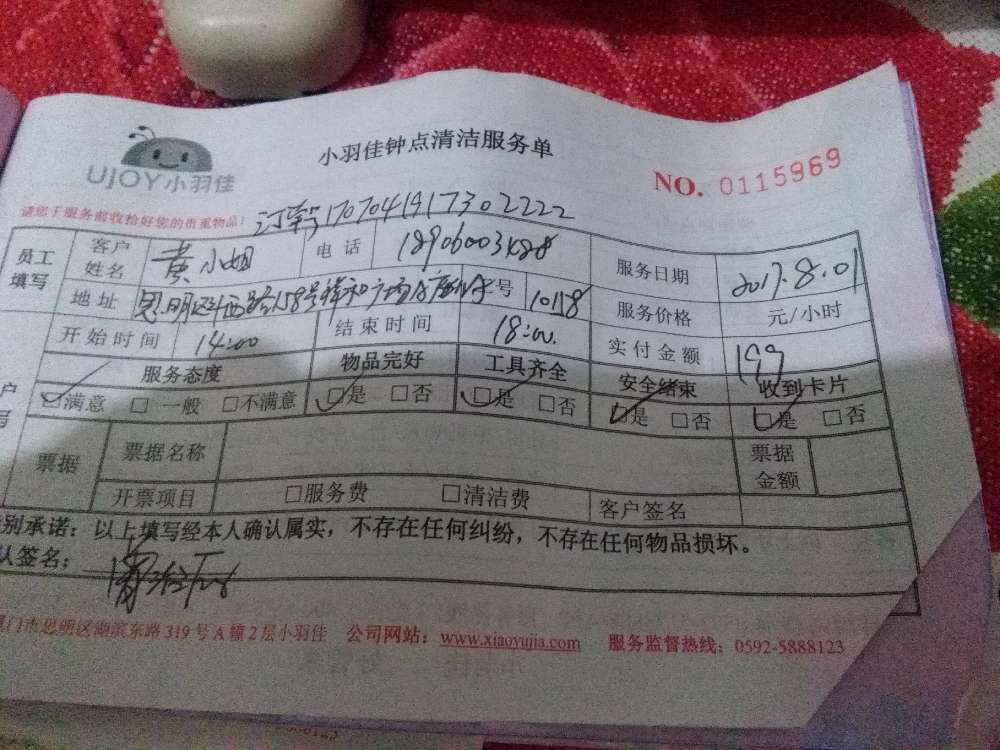 UJOY小羽佳
小羽佳钟点清洁服务单
NO. 0115969
请您于服务前收拾好您的贵重物品!
订单号1707041917302222
员工填写 客户姓名 黄小姐 电话 服务日期 2017.8.01
地址 号 服务价格 元/小时
开始时间 14:00 结束时间 18:00. 实付金额 199
服务态度 物品完好 工具齐全 安全结束 收到卡片
☑满意 □一般 □不满意 ☑是 □否 ☑是 □否 ☑是 □否 ☑是 □否
票据 票据名称 票据金额
开票项目 □服务费 □清洁费 客户签名
别承诺：以上填写经本人确认属实，不存在任何纠纷，不存在任何物品损坏。
认签名：
门市思明区湖滨东路319号A幢2层小羽佳 公司网站：www.xiaoyujia.com 服务监督热线：0592-5888123